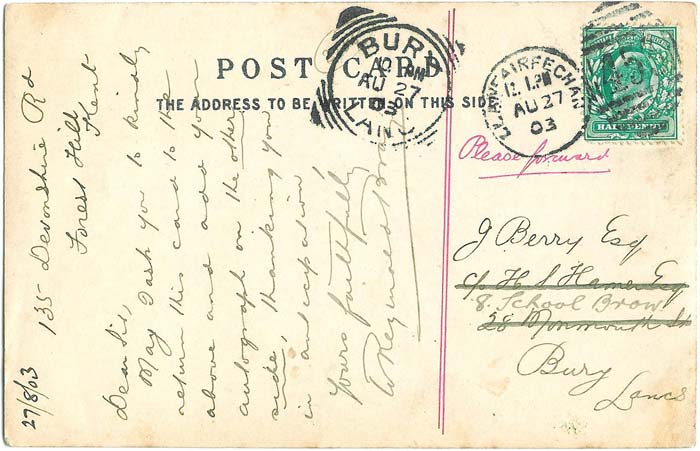 POST CARD
THE ADDRESS TO BE WRITTEN ON THIS SIDE
BURY
AU 27
03
LANC
LLANFAIRFECHAN
AU 27
03
HALFPENNY
Please forward
J Berry Esq
c/o H S Hamer Esq
8. School Brow
28 Monmouth St
Bury
Lancs
27/8/03
135 Devonshire Rd
Forest Hill
Kent
Dear Sir,
May I ask you to kindly
return this card to the
above and add your
autograph on the other
side, thanking you
in anticipation,
Yours faithfully
W Reginald